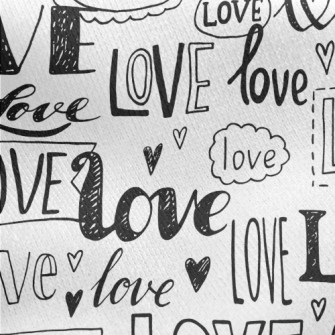 LOVE
VE
LOVE
love
love
love
OVE
love
ve
love
LOVE
L
LOVE